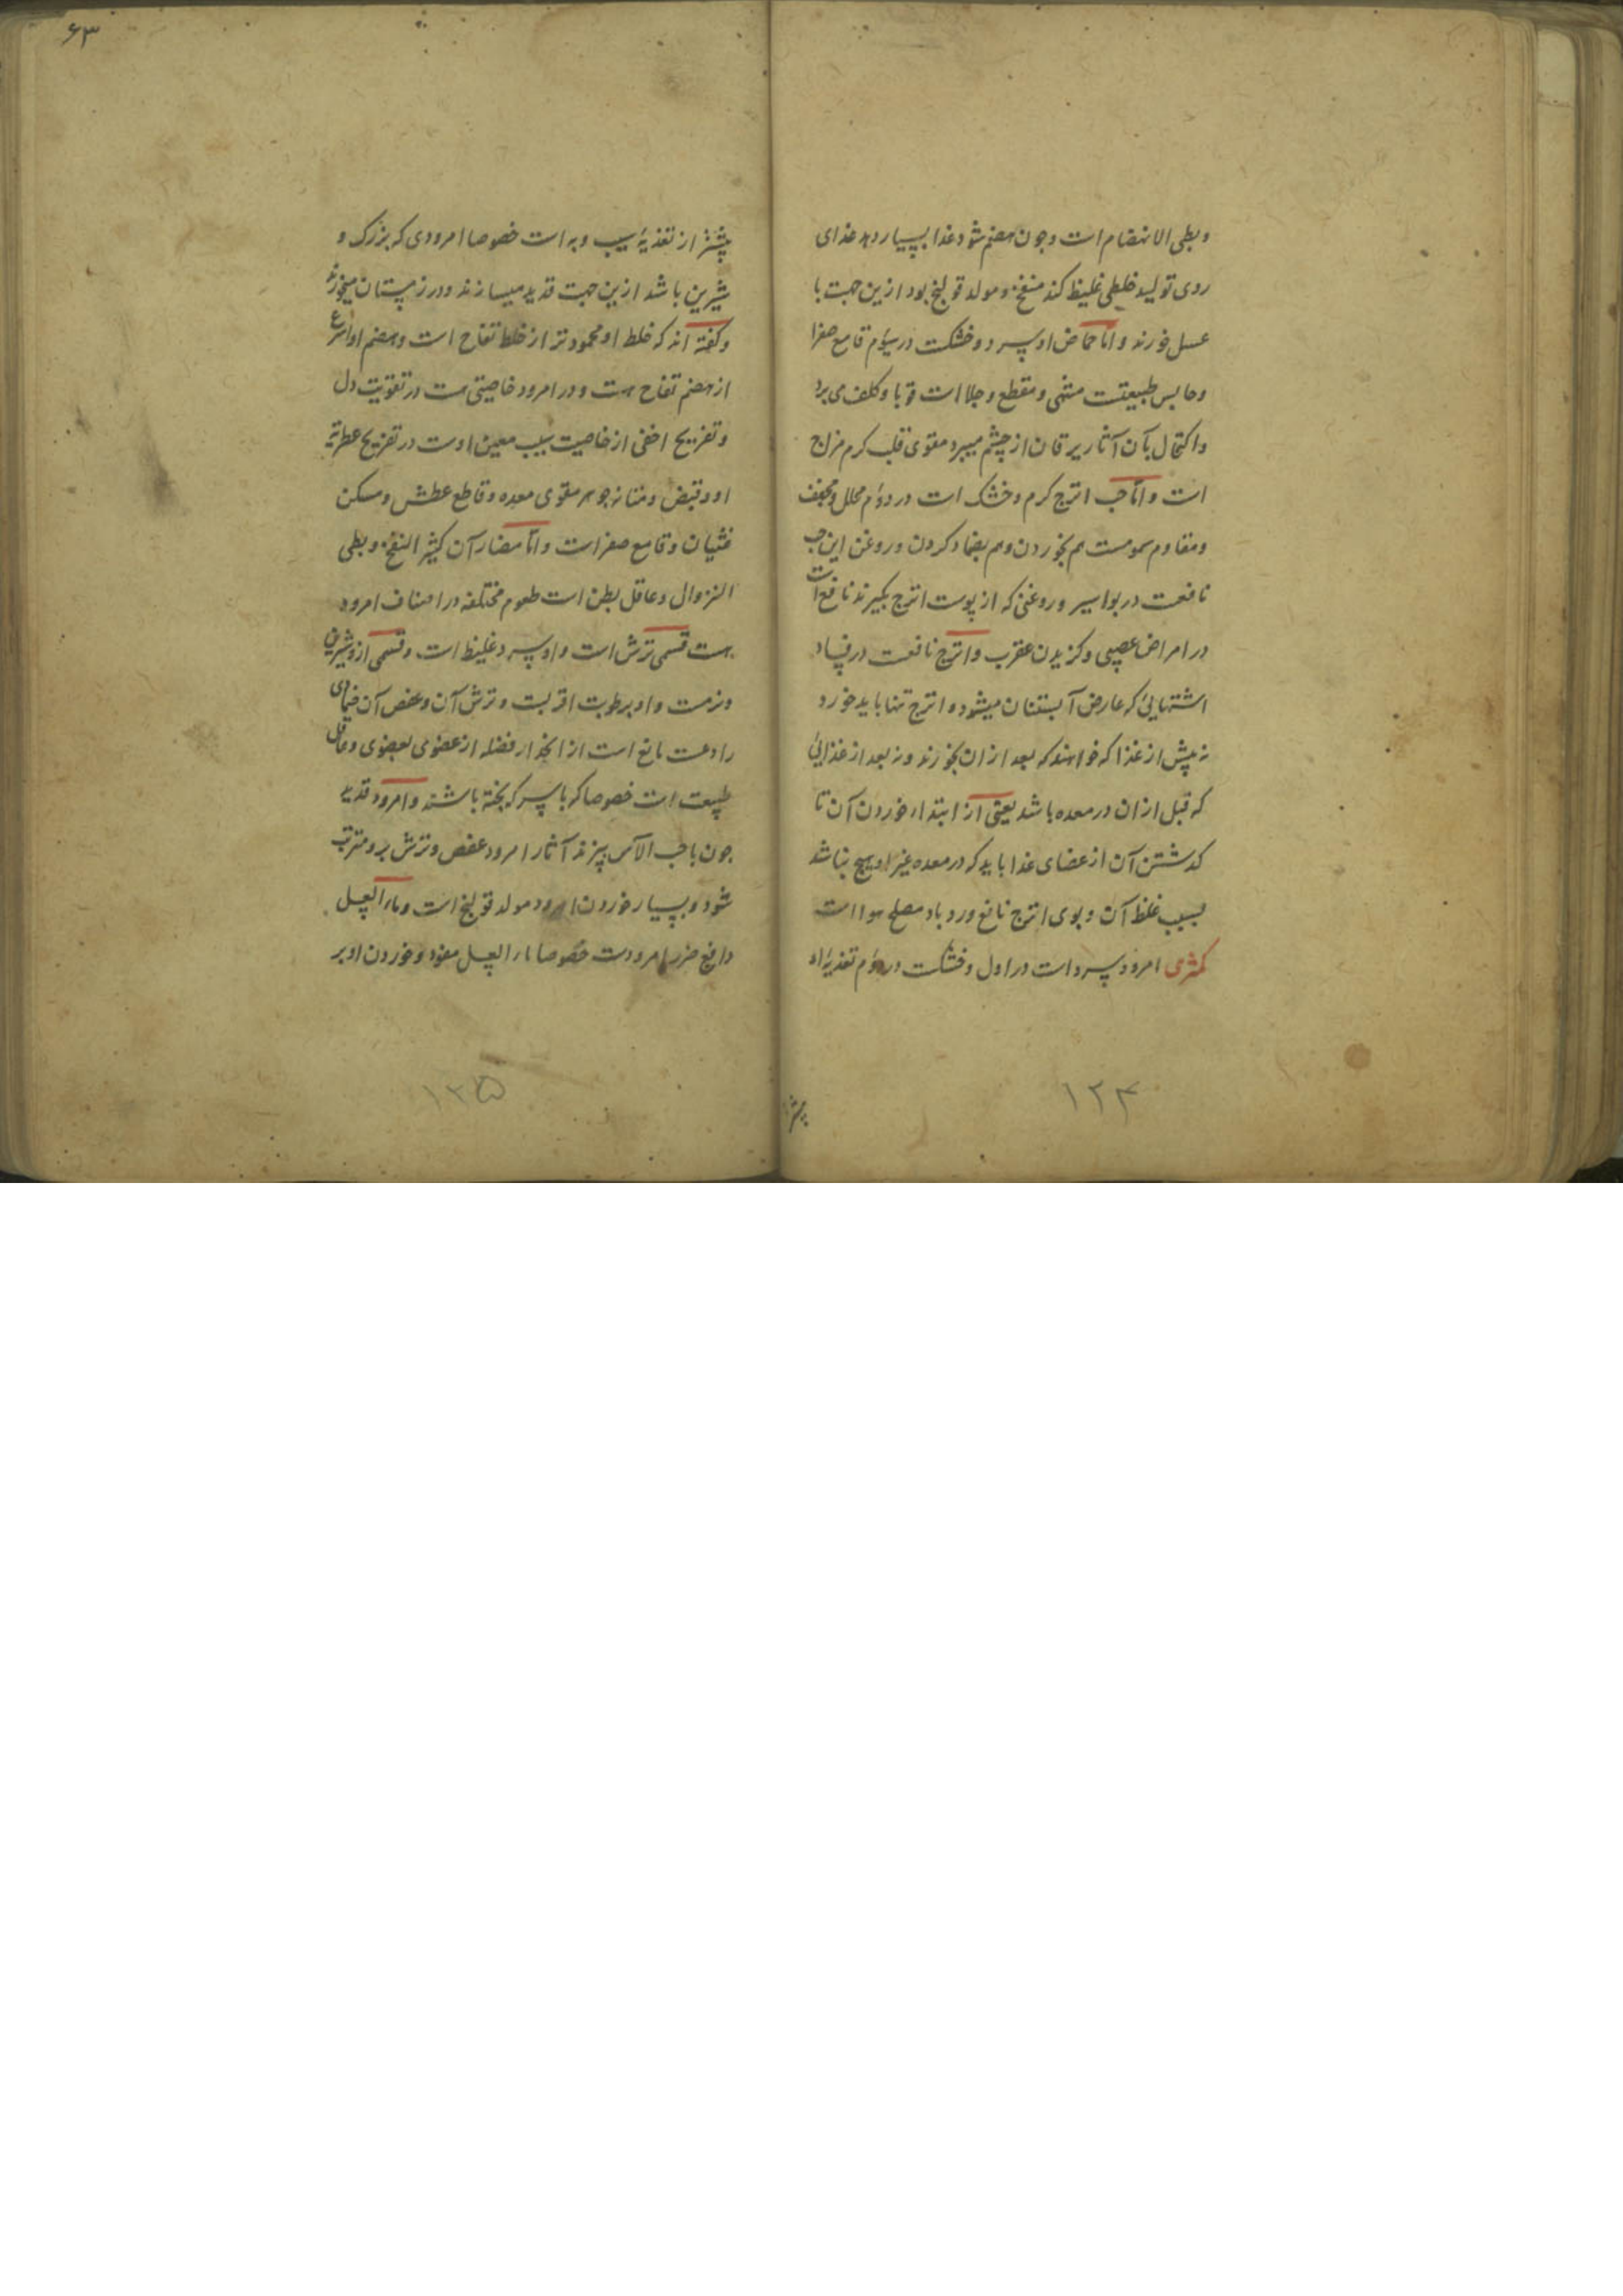 وبطی الانهضام است وجون هضم شود غذا بسیار دهد غذای
ردی تولید خلطی غلیظ کند منفخ و مولد قولنج بود ازین جهت با
عسل خورند واما حماض او سرد وخشکست در سیؤم قامع صفرا
وحابس طبیعتست مشهی ومقطع وجلا است قوبا وکلف می برد
واکتحال بآن آثار یرقان از چشم میبرد مقوی قلب کرم مزاج
است واما حب اترج کرم وخشک است در دوم محلل ومجفف
ومقاوم سمومست هم بخوردن وهم بضماد کردن وروغن این حب
نافعست در بواسیر وروغنی که از پوست اترج بکیرند نافع است
در امراض عصبی وکزیدن عقرب واترج نافعست در فساد
اشتهایی که عارض آبستنان میشود و اترج تنها باید خورد
نه پیش از غذا که خواهند که بعد ازان بخورند ونه بعد از غذایی
که قبل ازان در معده باشد یعنی از ابتداء خوردن آن تا
کذشتن آن از عضای غذا باید که در معده غیر او هیچ نباشد
بسبب غلظ آن وبوی اترج نافع ورد باد مصلح هوا است
کمثری امرود سرد است در اول وخشکست در دوم تغذیۀ او
پیشتر
۱۲۴
۶۳
پیشتر از تغذیۀ سیب وبه است خصوصا امرودی که بزرک و
شیرین باشد ازین جهت قدید میسازند ودر زمستان میخورند
وکفته اند که خلط او محمودتر از خلط تفاح است وهضم او اسرع
از هضم تفاح هست ودر امرود خاصیتی هست در تقویت دل
وتفریح اخفی از خاصیت سیب معین اوست در تفریح عطریة
او وقبض ومتانه جوهر مقوی معده وقاطع عطش ومسکن
غثیان وقامع صفراست واما مضار آن کثیر النفخ وبطی
النزوال وعاقل بطن است طعوم مختلفه در اصناف امرود
هست قسمی ترش است واو سرد غلیظ است وقسمی ازو شیرین
ونرمست واو برطوبت اقربست وترش آن وعفص آن ضمادی
رادعست مانع است از انجذار فضله از عضوی بعضوی وعاقل
طبیعت است خصوصا که با سرکه پخته باشند وامرود قدید
جون با حب الآس پزند آثار امرود عفص وترش برو مترتب
شود وبسیار خوردن امرود مولد قولنج است وماء العسل
دافع ضرر امرودست خصوصا ماء العسل مفوه وخوردن او بر
۱۲۵